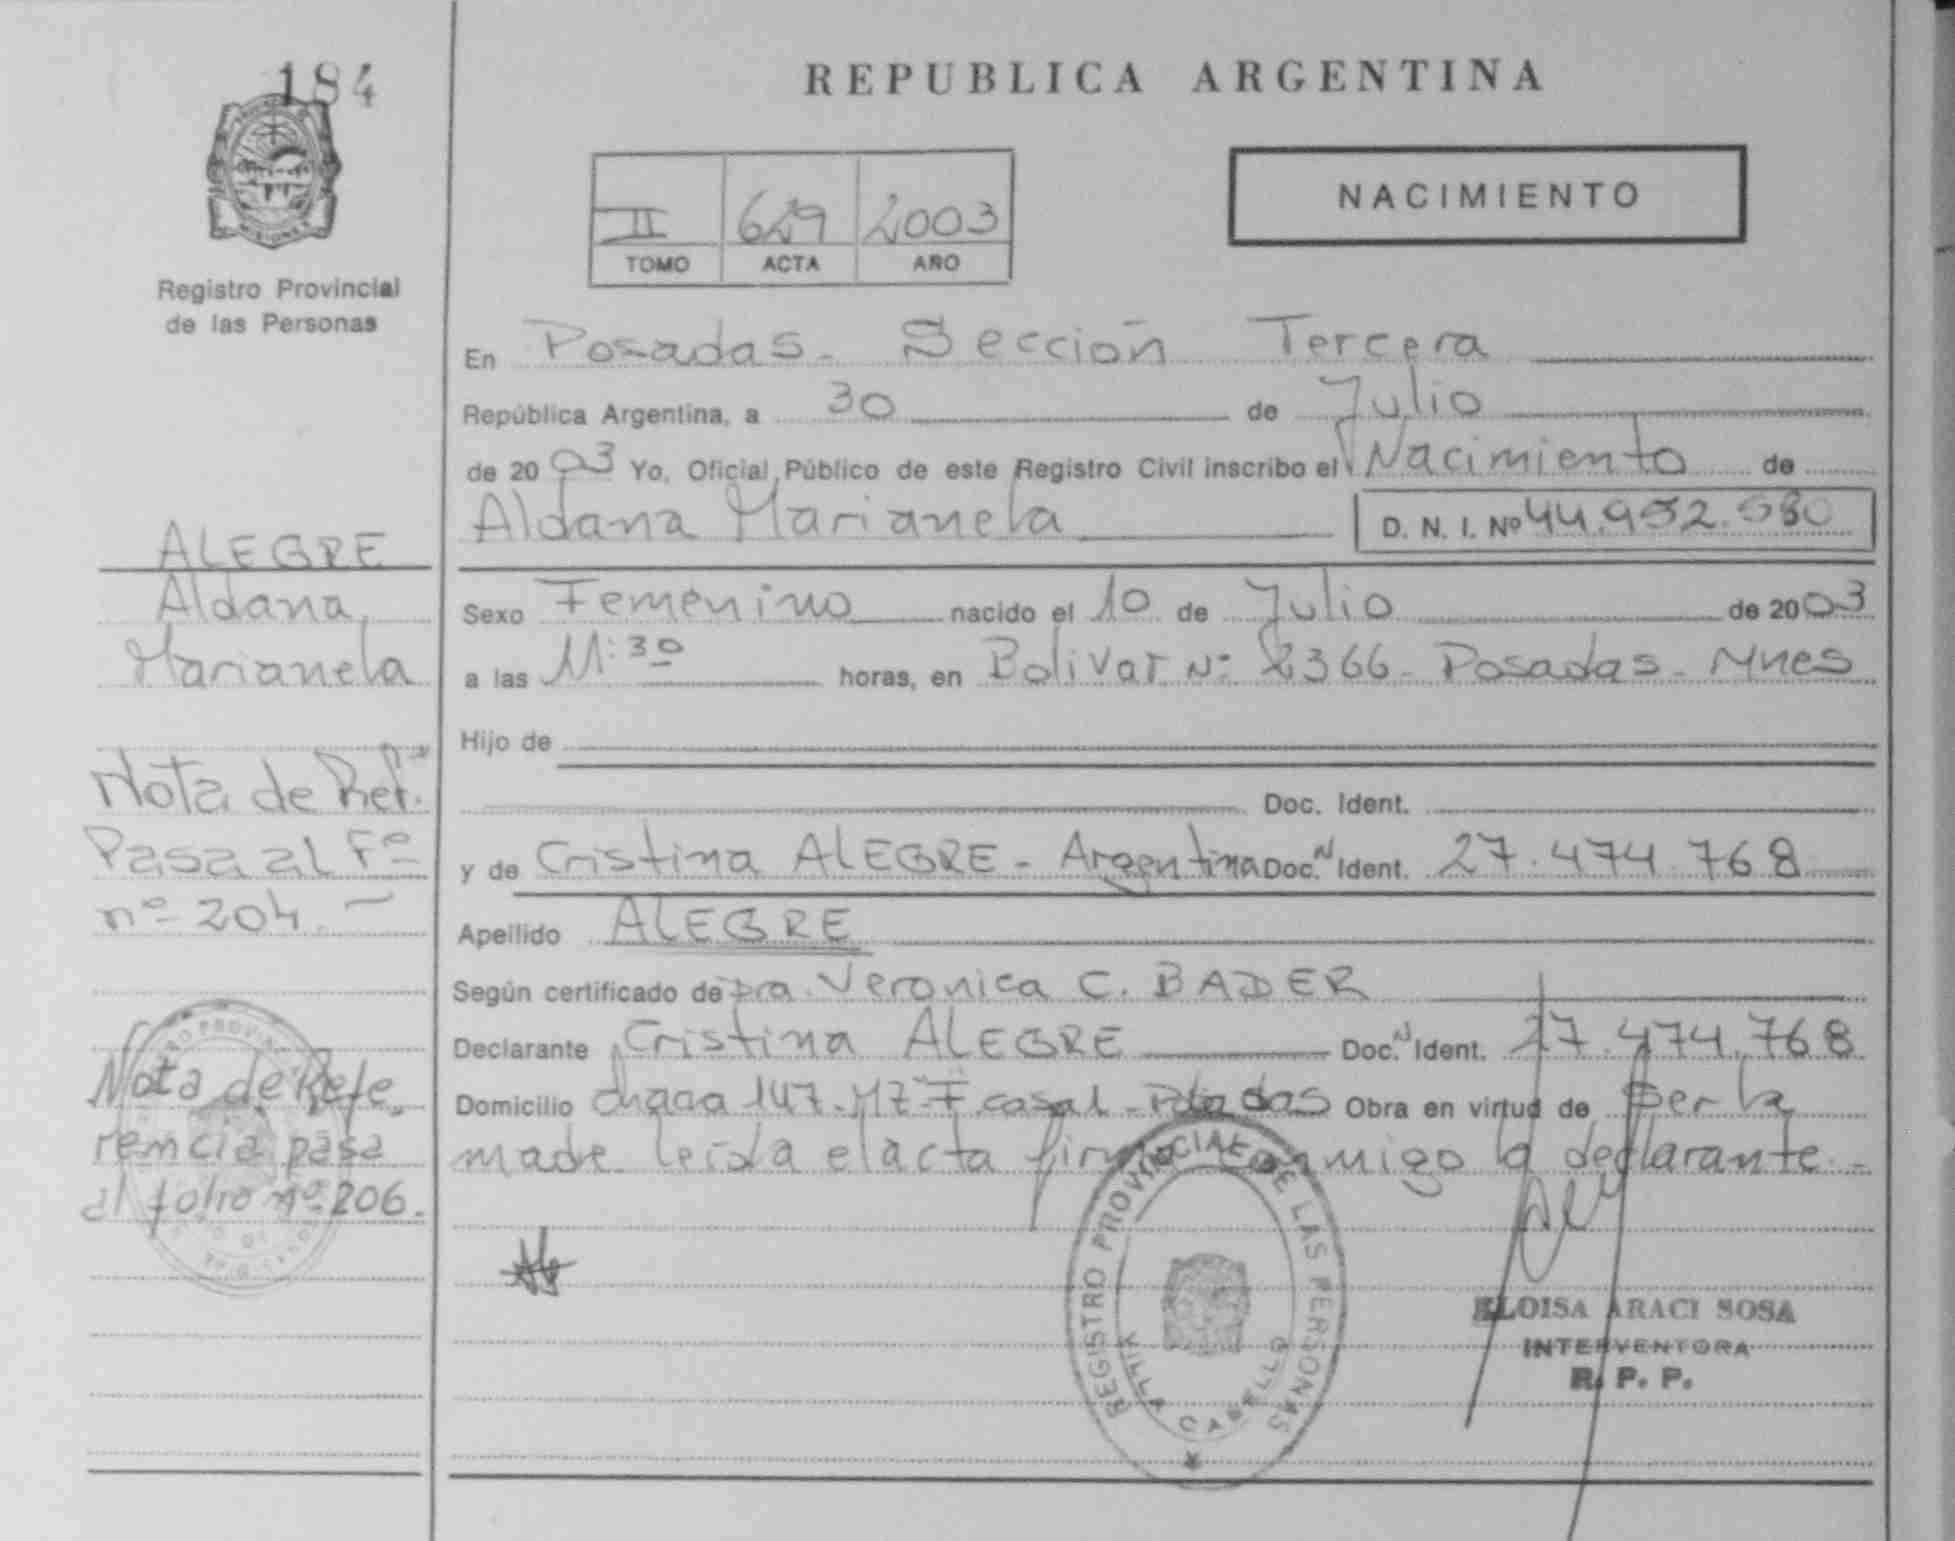 184
REPUBLICA ARGENTINA
NACIMIENTO
II 629 2003
TOMO ACTA AÑO
Registro Provincial
de las Personas
En Posadas - Sección Tercera
República Argentina, a 30 de Julio
de 2003 Yo, Oficial Público de este Registro Civil inscribo el Nacimiento de
Aldana Marianela D. N. I. Nº 44.952.580
ALEGRE
Aldana
Marianela
Sexo Femenino nacido el 10 de Julio de 2003
a las 11:30 horas, en Bolivar Nº 2366 - Posadas - Mnes
Hijo de
Doc. Ident.
y de Cristina ALEGRE - Argentina Doc. N Ident. 27.474.768
Apellido ALEGRE
Según certificado de Dra. Veronica C. BADER
Declarante Cristina ALEGRE Doc. N Ident. 27.474.768
Domicilio chaca 147 - MZ F casa 1 - Posadas Obra en virtud de Ser la
made leída el acta firma conmigo la declarante -
Nota de Ref.
Pasa al Fº
nº 204. -
Nota de Refe_
rencia pasa
al folio nº 206.
REGISTRO PROVINCIAL DE LAS PERSONAS
VILLA CABELLO
ELOISA ARACI SOSA
INTERVENTORA
R. P. P.